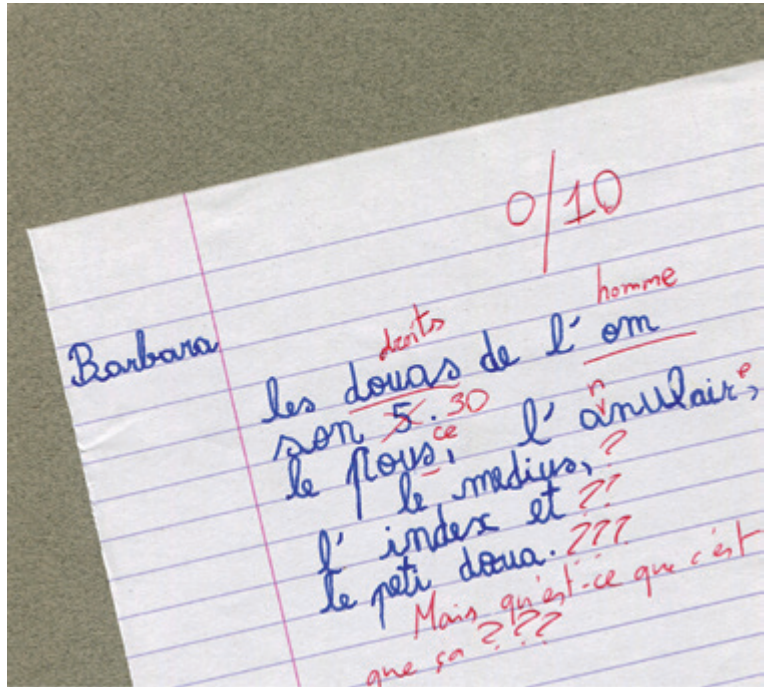 0/10
homme
droits
Barbara
les douas de l' om
son 5. 30
ce n e
le pous, l' anulair,
le medius, ?
l' index et ??
le peti doua. ???
Mais qu'est-ce que c'est
que ça ???